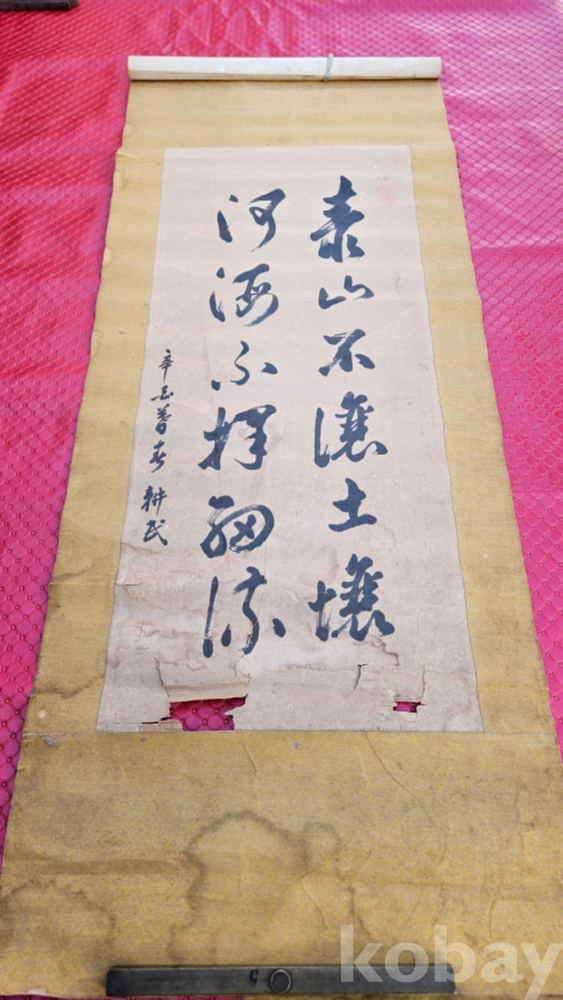 泰山不讓土壤
河海不擇細流
辛丑暮春 耕民
kobay